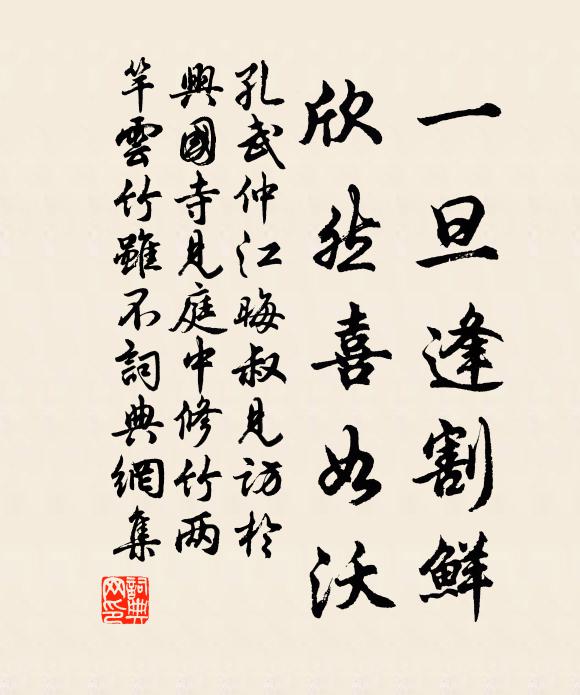 一旦逢割鮮
欣然喜如沃
孔武仲江晦叔見訪於
興國寺見庭中修竹两
竿雲竹雖不詞典網集
詞典网印